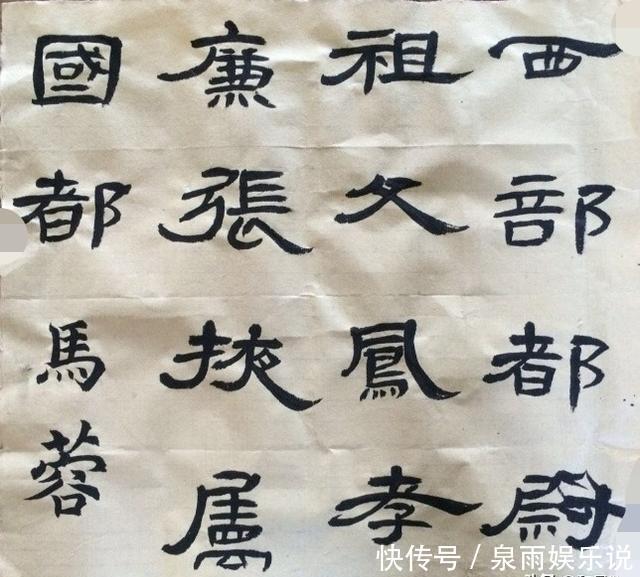 西部都尉
祖父鳳孝
廉張掖屬
國都馬蓉
快传号 / 泉雨娱乐说